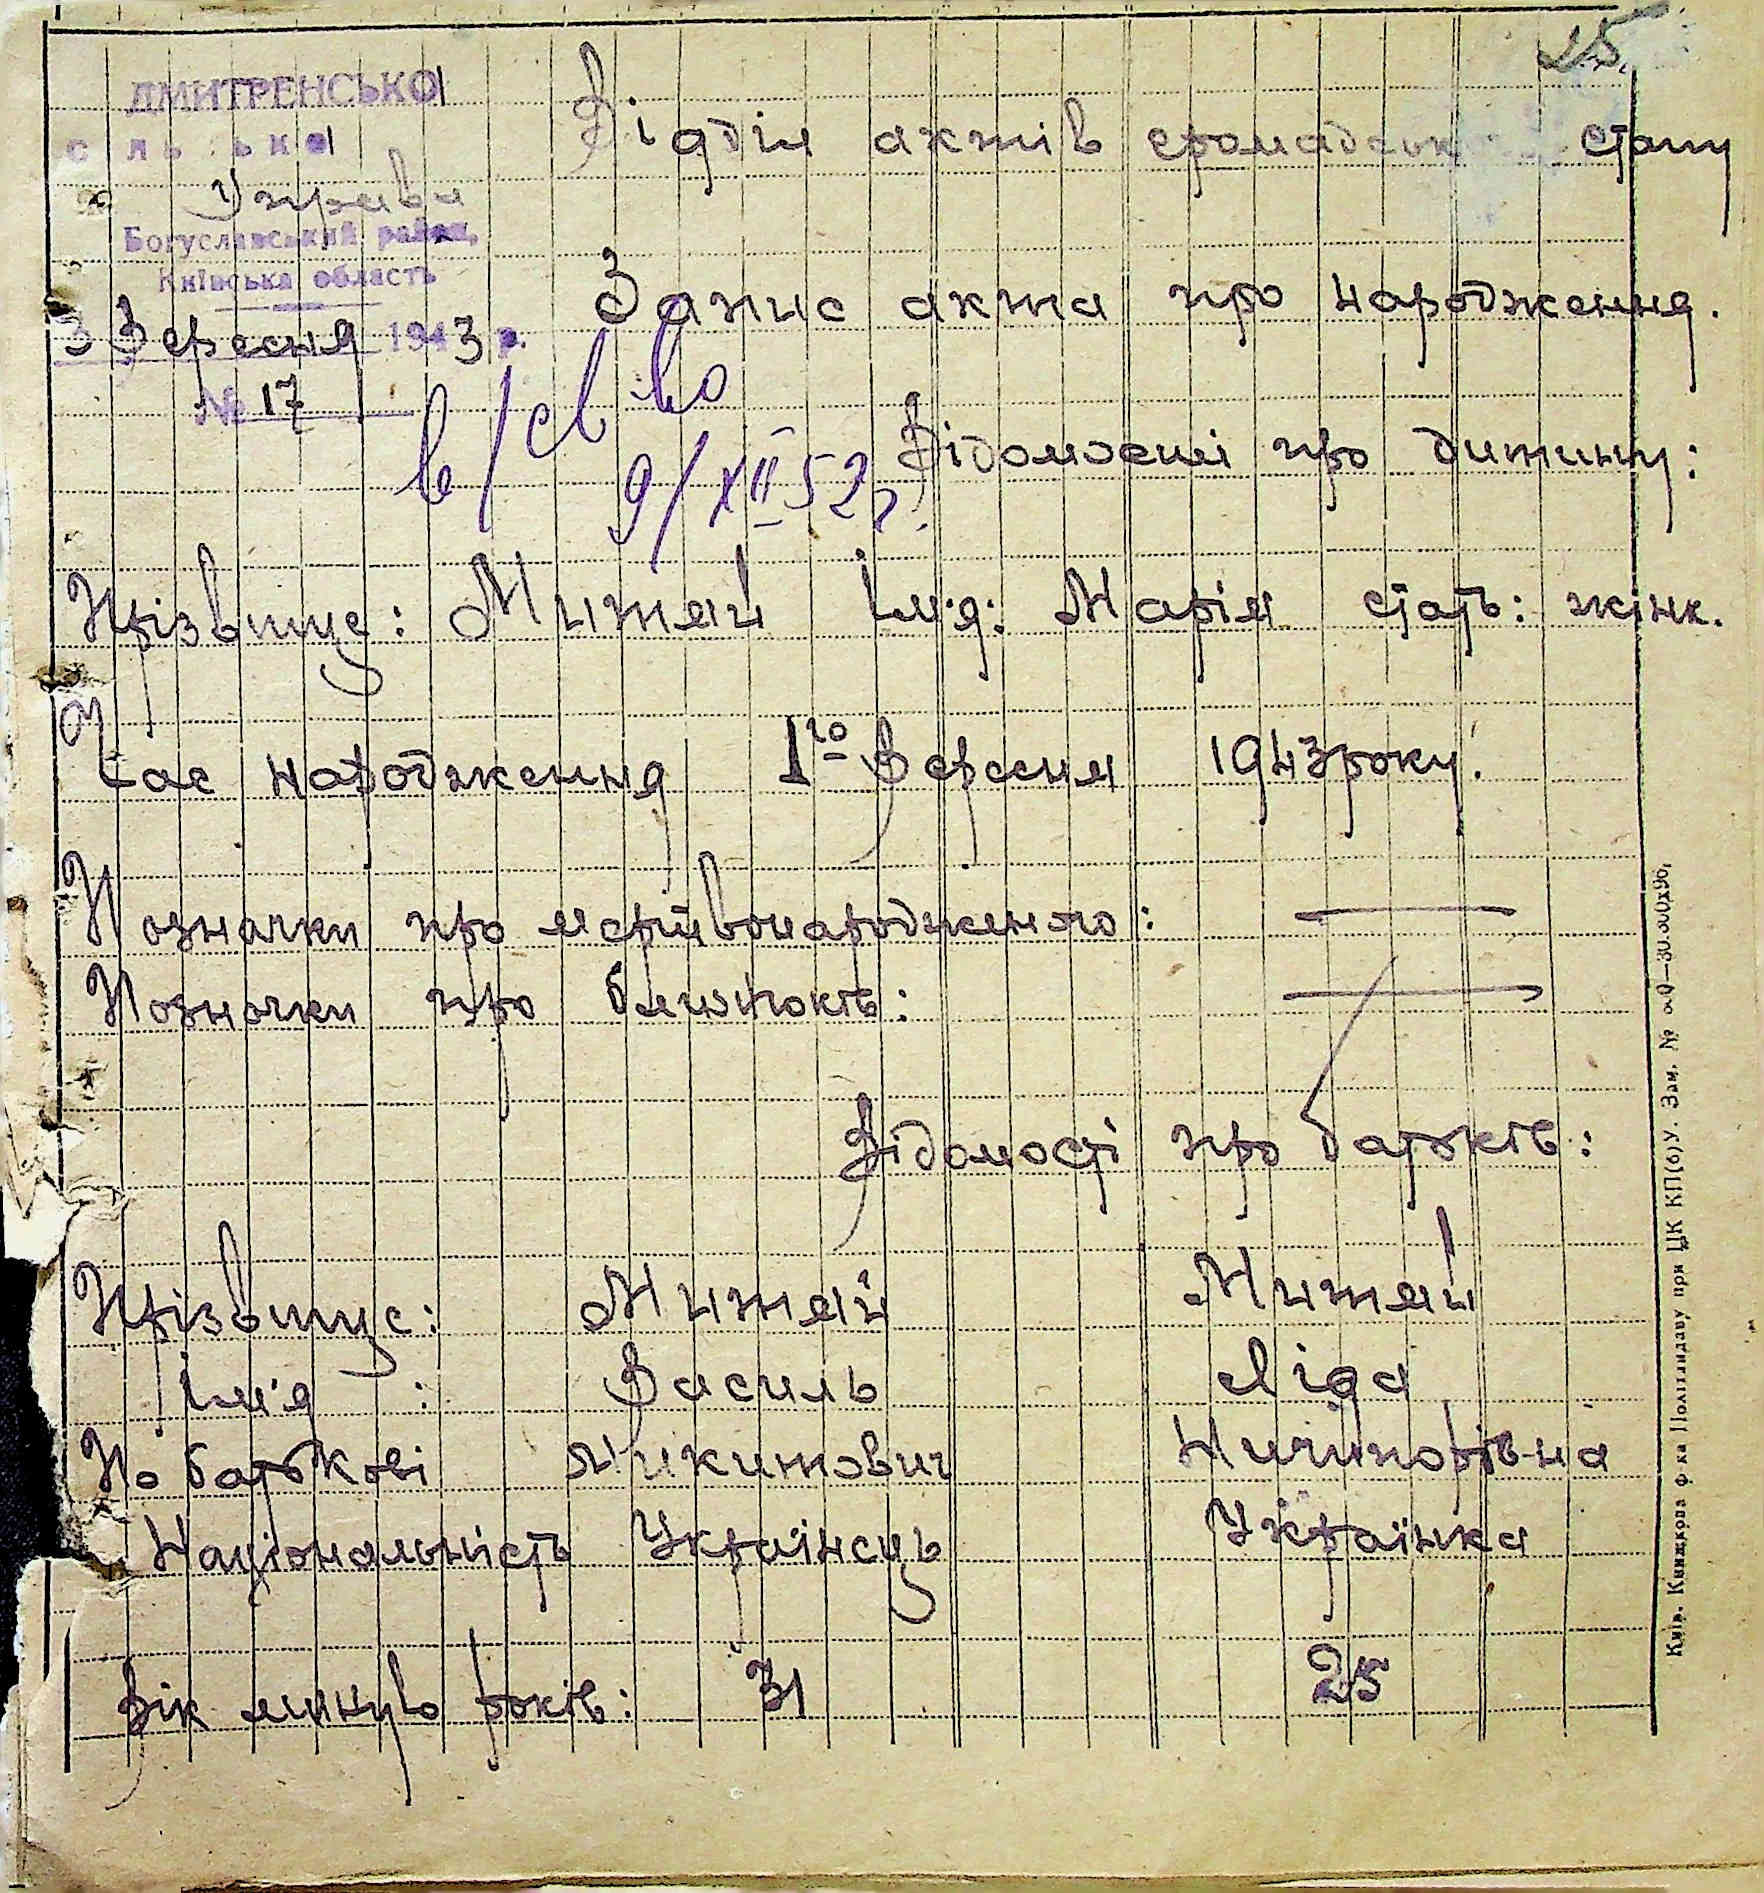 25
ДМИТРЕНСЬКО
Відділ актів громадськ стану
Управи
Богуславський район,
Київська область
Запис акта про народження.
3 Вересня 1943 р.
№ 17
в/св во
9/XII 52 г.
Відомості про дитину:
Прізвище: Митяй Ім'я: Марія стать: жінк.
Час народження 1го Вересня 1943 року.
Позначки про мертвонародженого:
Позначки про близнюків:
Відомості про батьків:
Прізвище: Митяй Митяй
Ім'я : Василь Ліда
По батькові Микитович Ничипорівна
Національність Українець Українка
Вік минуло років: 31 25
Київ. Книжкова ф-ка Політвидаву при ЦК КП(б)У. Зам. №